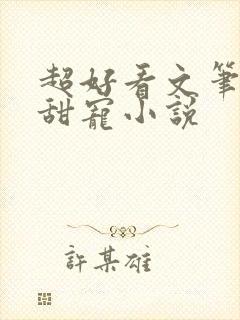 超好看文筆
甜寵小說
許某雄